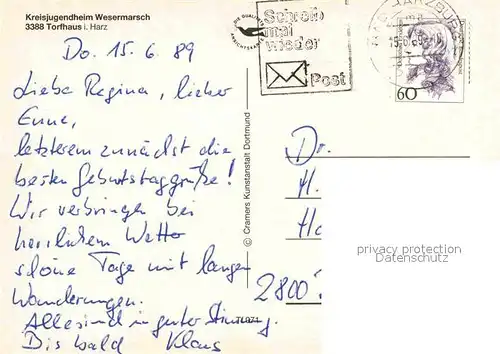 Kreisjugendheim Wesermarsch
3388 Torfhaus i. Harz
Do. 15. 6. 89
Liebe Regina, lieber
Enne,
letzterem zunächst die
besten Geburtstagsgrüße!
Wir verbringen bei
herrlichem Wetter
schöne Tage mit langen
Wanderungen.
Alle sind in guter Stimmung.
Bis bald Klaus
© Cramers Kunstanstalt Dortmund
Schreib
mal
wieder
Post
60
Dr.
H.
2800
privacy protection
Datenschutz